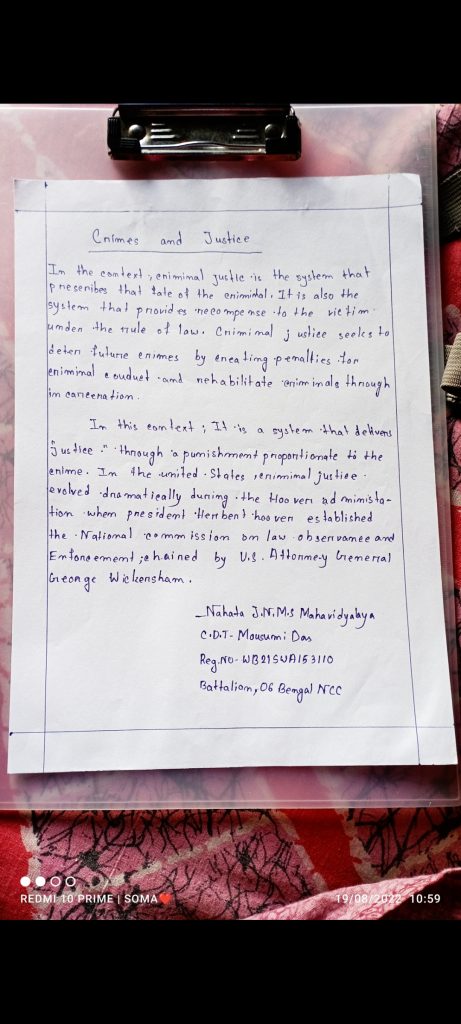 Crimes and Justice
In the context, criminal justic is the system that
prescribes that fate of the criminal. It is also the
system that provides recompense to the victim
under the rule of law. Criminal justice seeks to
deter future crimes by creating penalties for
criminal conduct and rehabilitate criminals through
incarceration.
In this context; It is a system that delivers
"Justice." through a punishment proportionate to the
crime. In the united States, criminal justice
evolved dramatically during the Hoover administa-
tion when president Herbert hoover established
the National commission on law observance and
Enforcement; chaired by U.S. Attorney Generral
George Wickersham.
_Nahata J.N.M.S Mahavidyalaya
C.D.T- Mousumi Das
Reg.No- WB21SWA153110
Battalion, 06 Bengal NCC
REDMI 10 PRIME | SOMA❤
19/08/2022 10:59